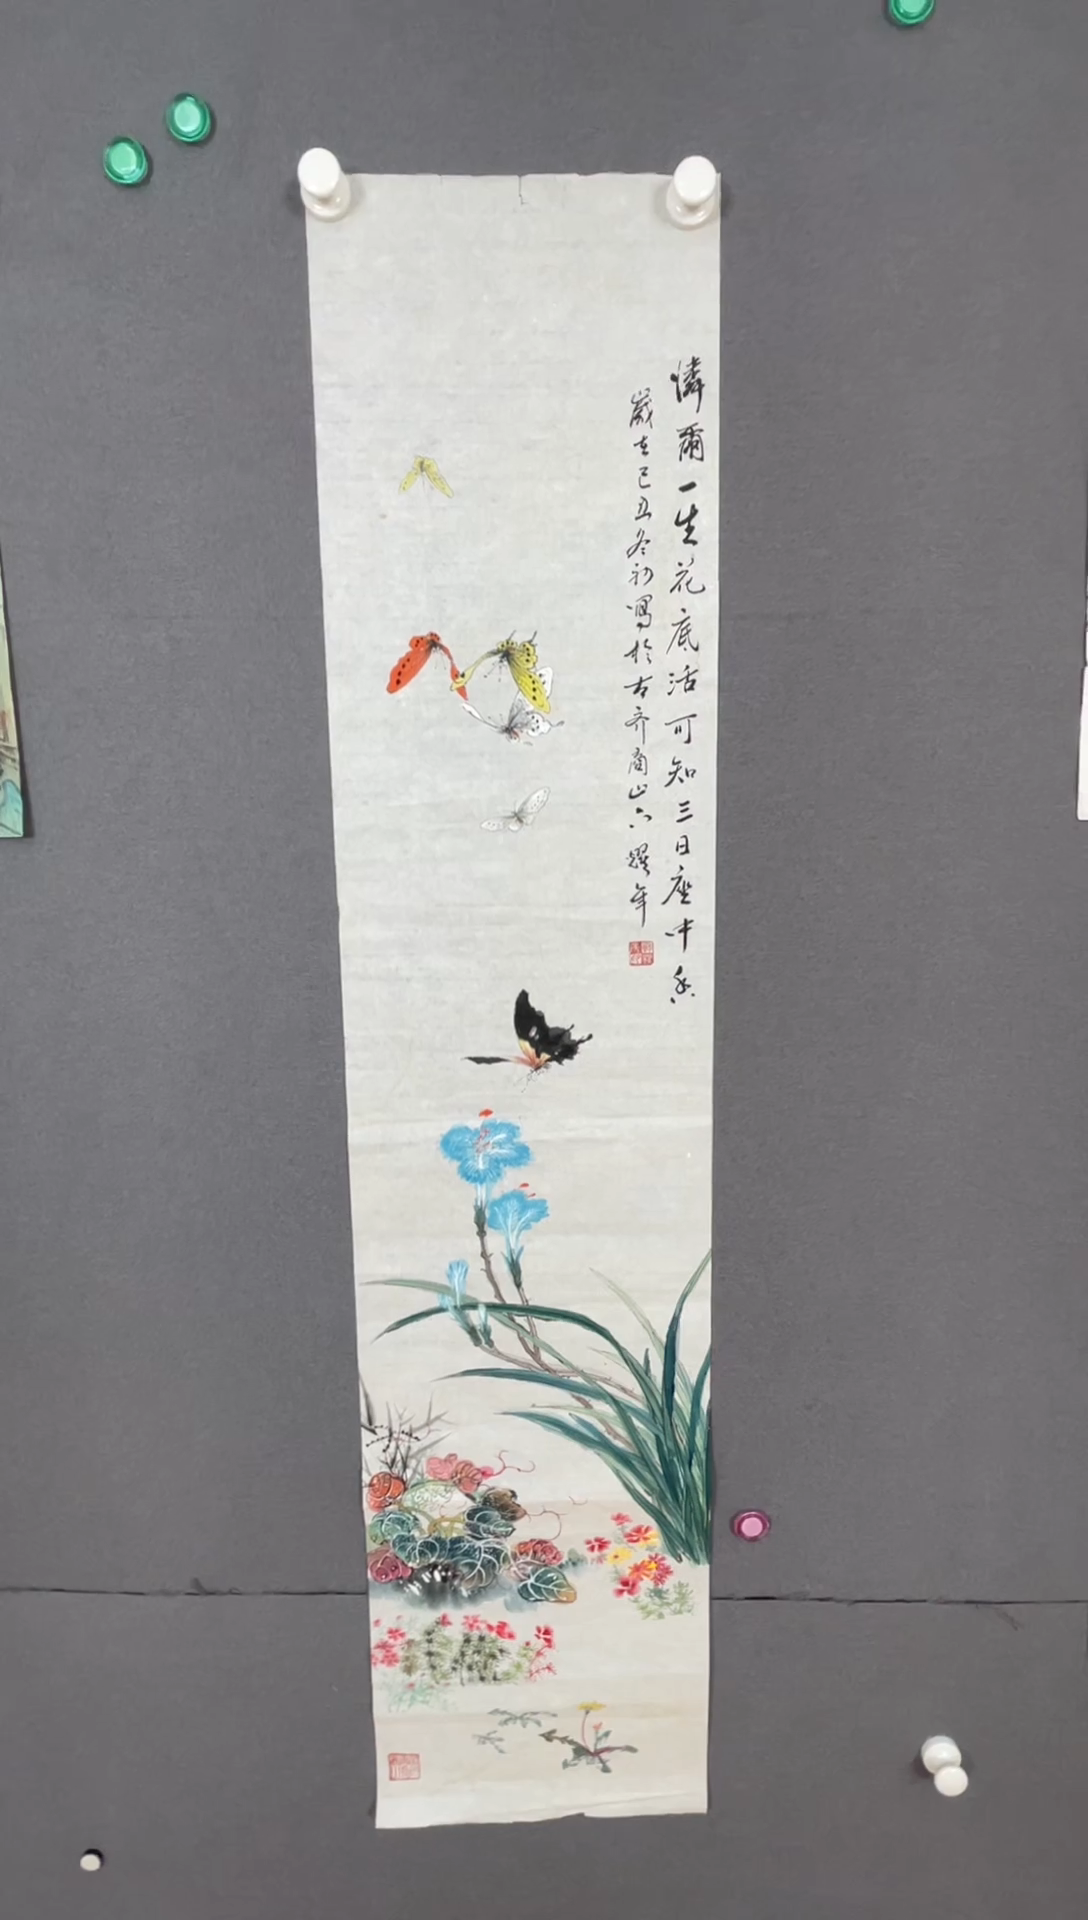 憐爾一生花底活可知三日座中香
歲在己丑冬初寫於古齊商山下 耀年